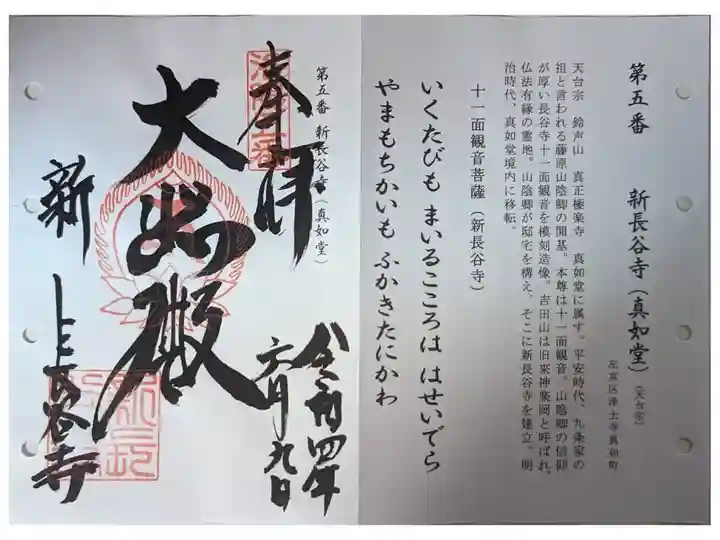 第五番 新長谷寺（真如堂）（天台宗）
左京区浄土寺真如町
天台宗 鈴声山 真正極楽寺 真如堂に属す。平安時代、九条家の
祖と言われる藤原山陰卿の開基。本尊は十一面観音。山陰卿の信仰
が厚い長谷寺十一面観音を模刻造像。吉田山は旧来神楽岡と呼ばれ、
仏法有縁の霊地。山陰卿が邸宅を構え、そこに新長谷寺を建立。明
治時代、真如堂境内に移転。
十一面観音菩薩（新長谷寺）
いくたびも まいるこころは はせいでら
やまもちかいも ふかきたにかわ
第五番 新長谷寺（真如堂）
奉拝
令和四年
六月九日
大悲殿
新長谷寺